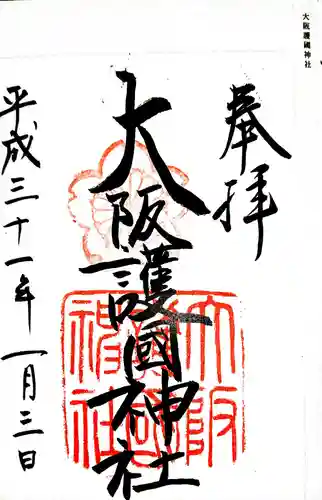 大阪護國神社
奉拝
大阪護國神社
平成三十一年一月三日
大阪護國神社